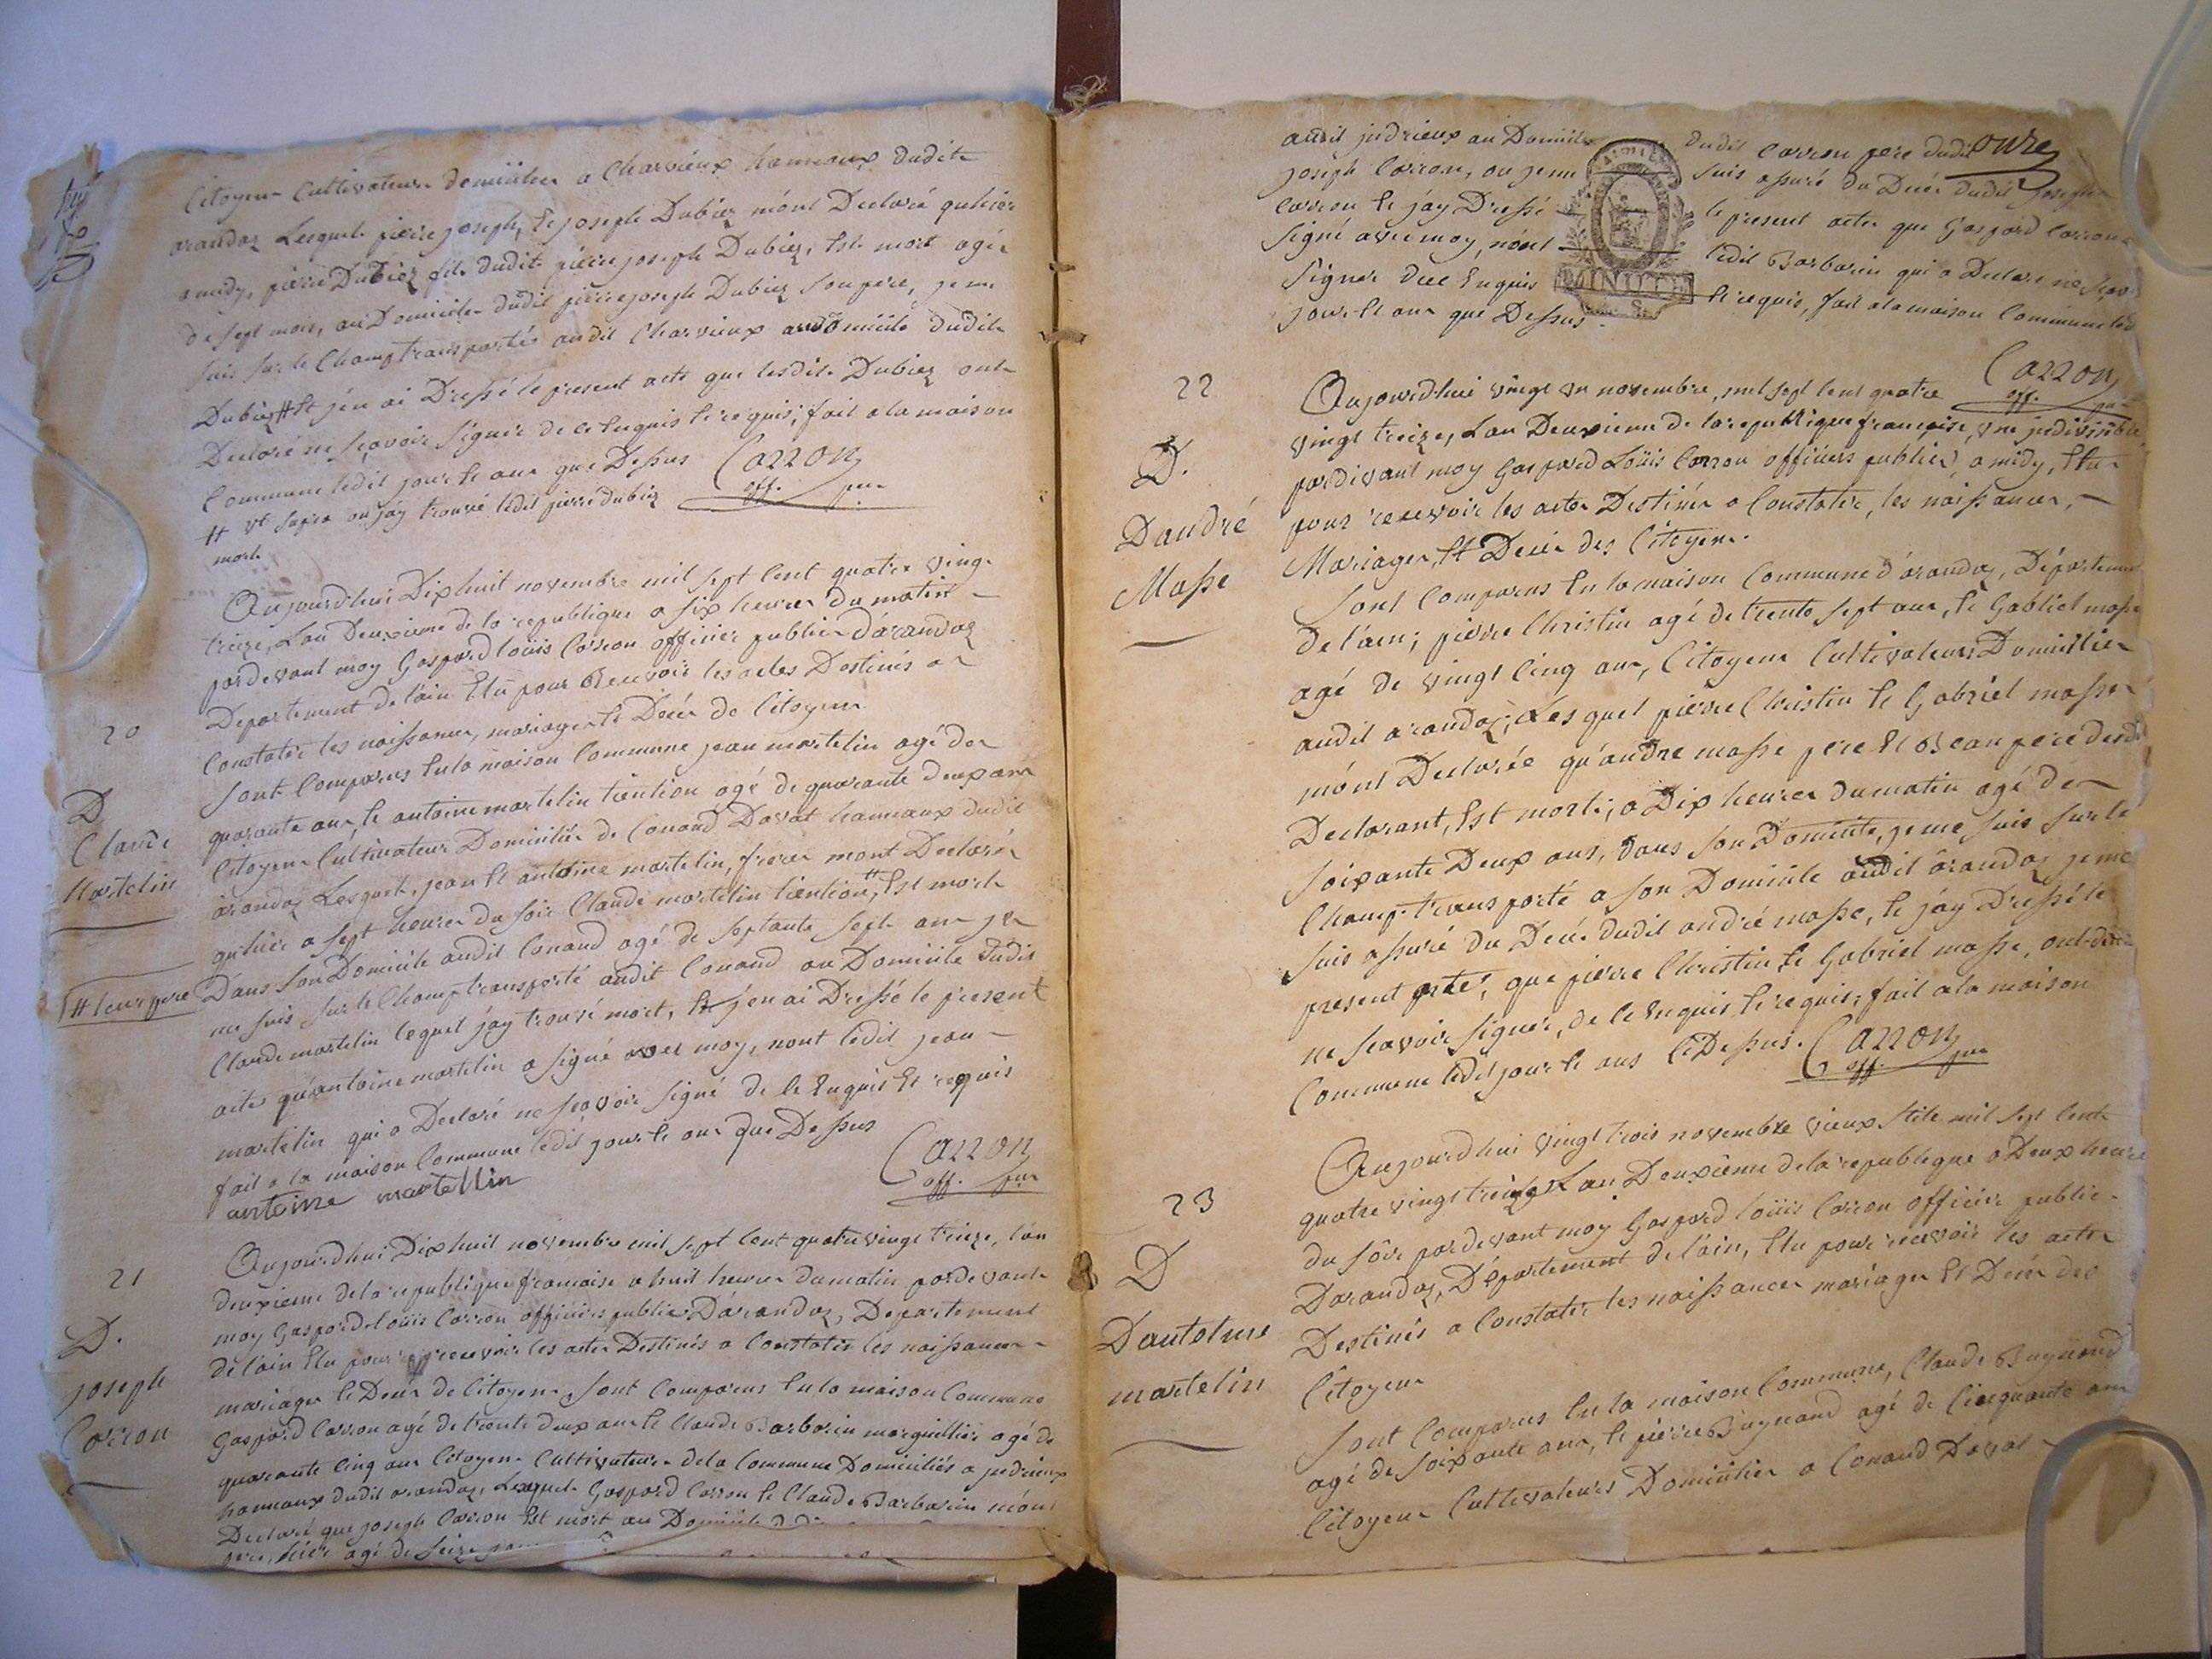 Citoyens Cultivateurs domiciliés a Charvieux hameaux dudit
arandaz Lesquels pierre joseph, & joseph Dubiez m'ont Declaré qu'hier
a midy, pierre Dubiez fils dudit pierre joseph Dubiez, Est mort agé
de sept mois, au Domicile dudit pierre joseph Dubiez son pere, je me
suis sur le Champ transportés audit Charvieux au domicile dudit
Dubiez # Et j'en ai Dressé le present acte que lesdits Dubiez ont
Declaré ne scavoir signer de ce Enquis & requis, fait a la maison
Commune ledit jour & an que Dessus Carron
off. pu.
# vt supra ou j'ay trouvé ledit pierre dubiez
mort
20
D
Claude
Martelin
# leur pere
Aujourd'hui Dixhuit novembre mil sept Cent quatre vingt
treize, L'an Deuxieme de la republique a six heures du matin
pardevant moy Gaspard louis Carron officier public D'arandaz
Departement de l'ain Elu pour Recevoir les actes Destinés a
Constater les naissances, mariages & Décès de Citoyens
sont Comparus En la maison Commune jean martelin agé de
quarante ans, & antoine martelin tiention agé de quarante deux ans
Citoyens Cultivateurs Domiciliés de Conand Davat hameaux dudit
arandaz Lesquels, jean & antoine martelin, freres mont Declaré
qu'hier a sept heures du soir Claude martelin tiention #, Est mort
Dans son Domicile audit Conand agé de septante sept ans je
me suis sur le Champ transporté audit Conand au Domicile dudit
Claude martelin lequel j'ay trouvé mort, & j'en ai Dressé le present
acte qu'antoine martelin a signé avec moy, nont ledit jean
martelin qui a Declaré ne scavoir signé de ce Enquis Et requis
fait a la maison Commune ledit jour & an que Dessus
antoine martellin
Carron
off. pu
21
D.
joseph
Carron
Aujourd'hui Dixhuit novembre mil sept Cent quatre vingt treize, l'an
deuxieme de la republique francaise a huit heures du matin pardevant
moy Gaspard louis Carron officier public D'arandaz, Departement
de l'ain Elu pour recevoir les actes Destinés a Constater les naissances
mariages & Décès de Citoyens sont Comparus En la maison Commune
Gaspard Carron agé de trente deux ans & Claude Barbarin marguillier agé de
quarante Cinq ans Citoyens Cultivateurs de la Commune Domiciliés a judrieux
hameaux dudit arandaz, Lesquels Gaspard Carron & Claude Barbarin m'ont
Declaré que joseph Carron Est mort au Domicile
pere, hier agé de seize
onze
audit judrieux au Domicile dudit Carron pere dudit
joseph Carron, ou je me suis assuré du Décès dudit joseph
Carron & j'ay Dressé le present acte que Gaspard Carron a
signé avec moy, nont ledit Barbarin qui a Declaré ne scavoir
signer de ce Enquis & requis, fait a la maison Commune led
jour & an que Dessus.
MINUTE
Carron
off. pu
22
D.
D'andré
Masse
Aujourd'hui vingt un novembre, mil sept Cent quatre
vingt treize, L'an Deuxieme de la republique francaise, une indivisible
pardevant moy Gaspard Loüis Carron officiers public, a midy, Elu
pour recevoir les actes Destinés a Constater, les naissances,
Mariages, Et Décès des Citoyens.
Sont Comparus En la maison Commune d'arandaz, Département
de l'ain; pierre Christin agé de trente sept ans, & Gabriel masse
agé de vingt Cinq ans, Citoyens Cultivateurs Domiciliés
audit arandaz; Lesquel pierre Christin & Gabriel masse
m'ont Declarée qu'andré masse pere Et Beau pere desd
Declarant, Est mort; a Dix heures du matin agé de
soixante Deux ans, dans son Domicile, je me suis sur le
Champ transporté a son Domicile audit arandaz je me
suis assuré du Décès dudit andré masse, & j'ay Dressé le
present acte, que pierre Christin & Gabriel masse, ont declaré
ne scavoir signer, de ce Enquis & requis, fait a la maison
Commune ledit jour & ans Ci Dessus. Carron
off. pu
23
D
D'antoine
martelin
Aujourd'hui vingt trois novembre vieux stile mil sept Cent
quatre vingt treize L'an Deuxieme de la republique a Deux heures
du soir pardevant moy Gaspard loüis Carron officier public
Darandaz, Département de l'ain, Elu pour recevoir les actes
Destinés a Constater les naissances mariages Et Décès des
Citoyens
Sont Comparus En la maison Commune, Claude Buynand
agé de soixante ans, & pierre Buynand agé de Cinquante ans
Citoyens Cultivateurs Domiciliés a Conand Davat